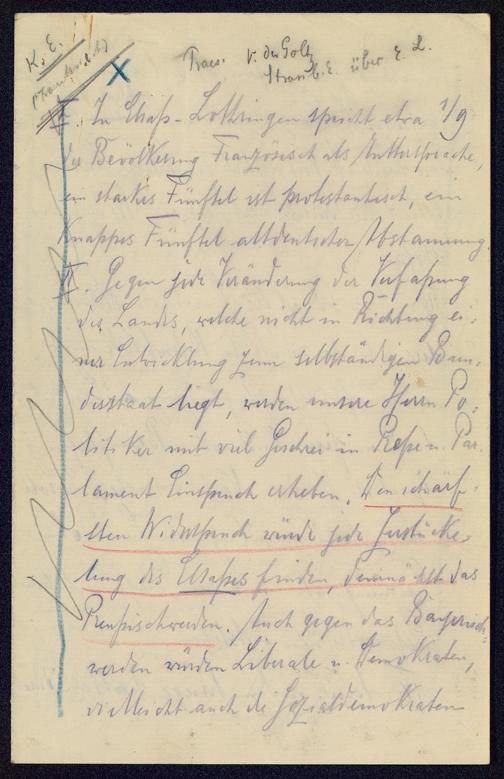 K. E.
(Frankreich)
X
Praes. v. der Goltz
Strassb. E. über E. L.
I. In Elsaß-Lothringen spricht etwa 1/9
der Bevölkerung Französisch als Muttersprache,
ein starkes Fünftel ist protestantisch, ein
knappes Fünftel altdeutscher Abstammung.
II. Gegen jede Veränderung der Verfaßung
des Landes, welche nicht in Richtung ei-
ner Entwicklung zum selbständigen Bun-
desstaat liegt, werden unsere Herrn Po-
litiker mit viel Geschrei in Preße u. Par-
lament Einspruch erheben. Den schärf-
sten Widerspruch würde jede Zerstücke-
lung des Elsaßes finden, demnächst das
Preußischwerden. Auch gegen das Bayerisch-
werden würden Liberale u. Demokraten,
vielleicht auch die Sozialdemokraten